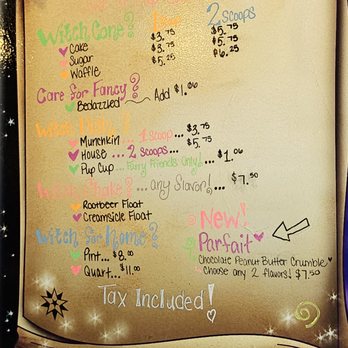 2 Scoops
Witch Cone?
Cake $3.75 $5.75
Sugar $3.75 $5.75
Waffle $5.25 $6.25
Care for Fancy?
Bedazzled Add $1.00
Munchkin ... 1 Scoop ... $3.75
House ... 2 Scoops ... $5.75
Pup Cup ... Furry Friends Only! ... $1.00
Witch Shake? ...any flavor! ... $7.50
Rootbeer Float
Creamsicle Float
Witch for Home?
Pint ... $8.00
Quart ... $11.00
New!
Parfait
Chocolate Peanut Butter Crumble
Choose any 2 flavors! $7.50
Tax Included!